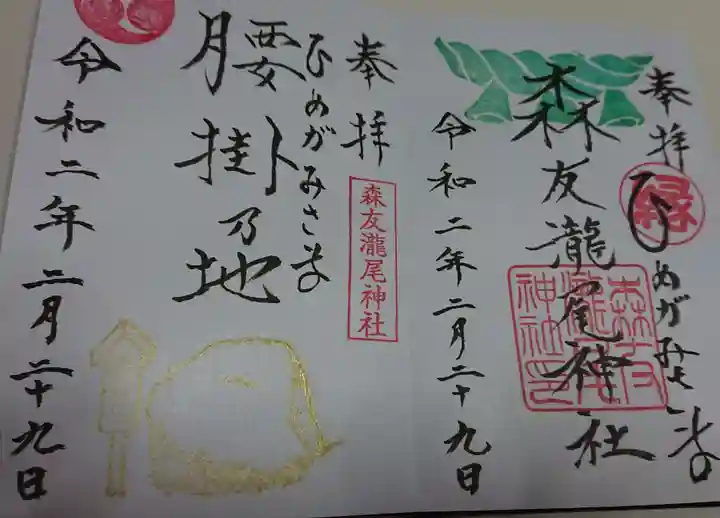 奉拝
縁
ひめがみさま
森友瀧尾神社
森友瀧尾神社印
令和二年二月二十九日
奉拝
森友瀧尾神社
ひめがみさま
腰掛乃地
月
令和二年二月二十九日